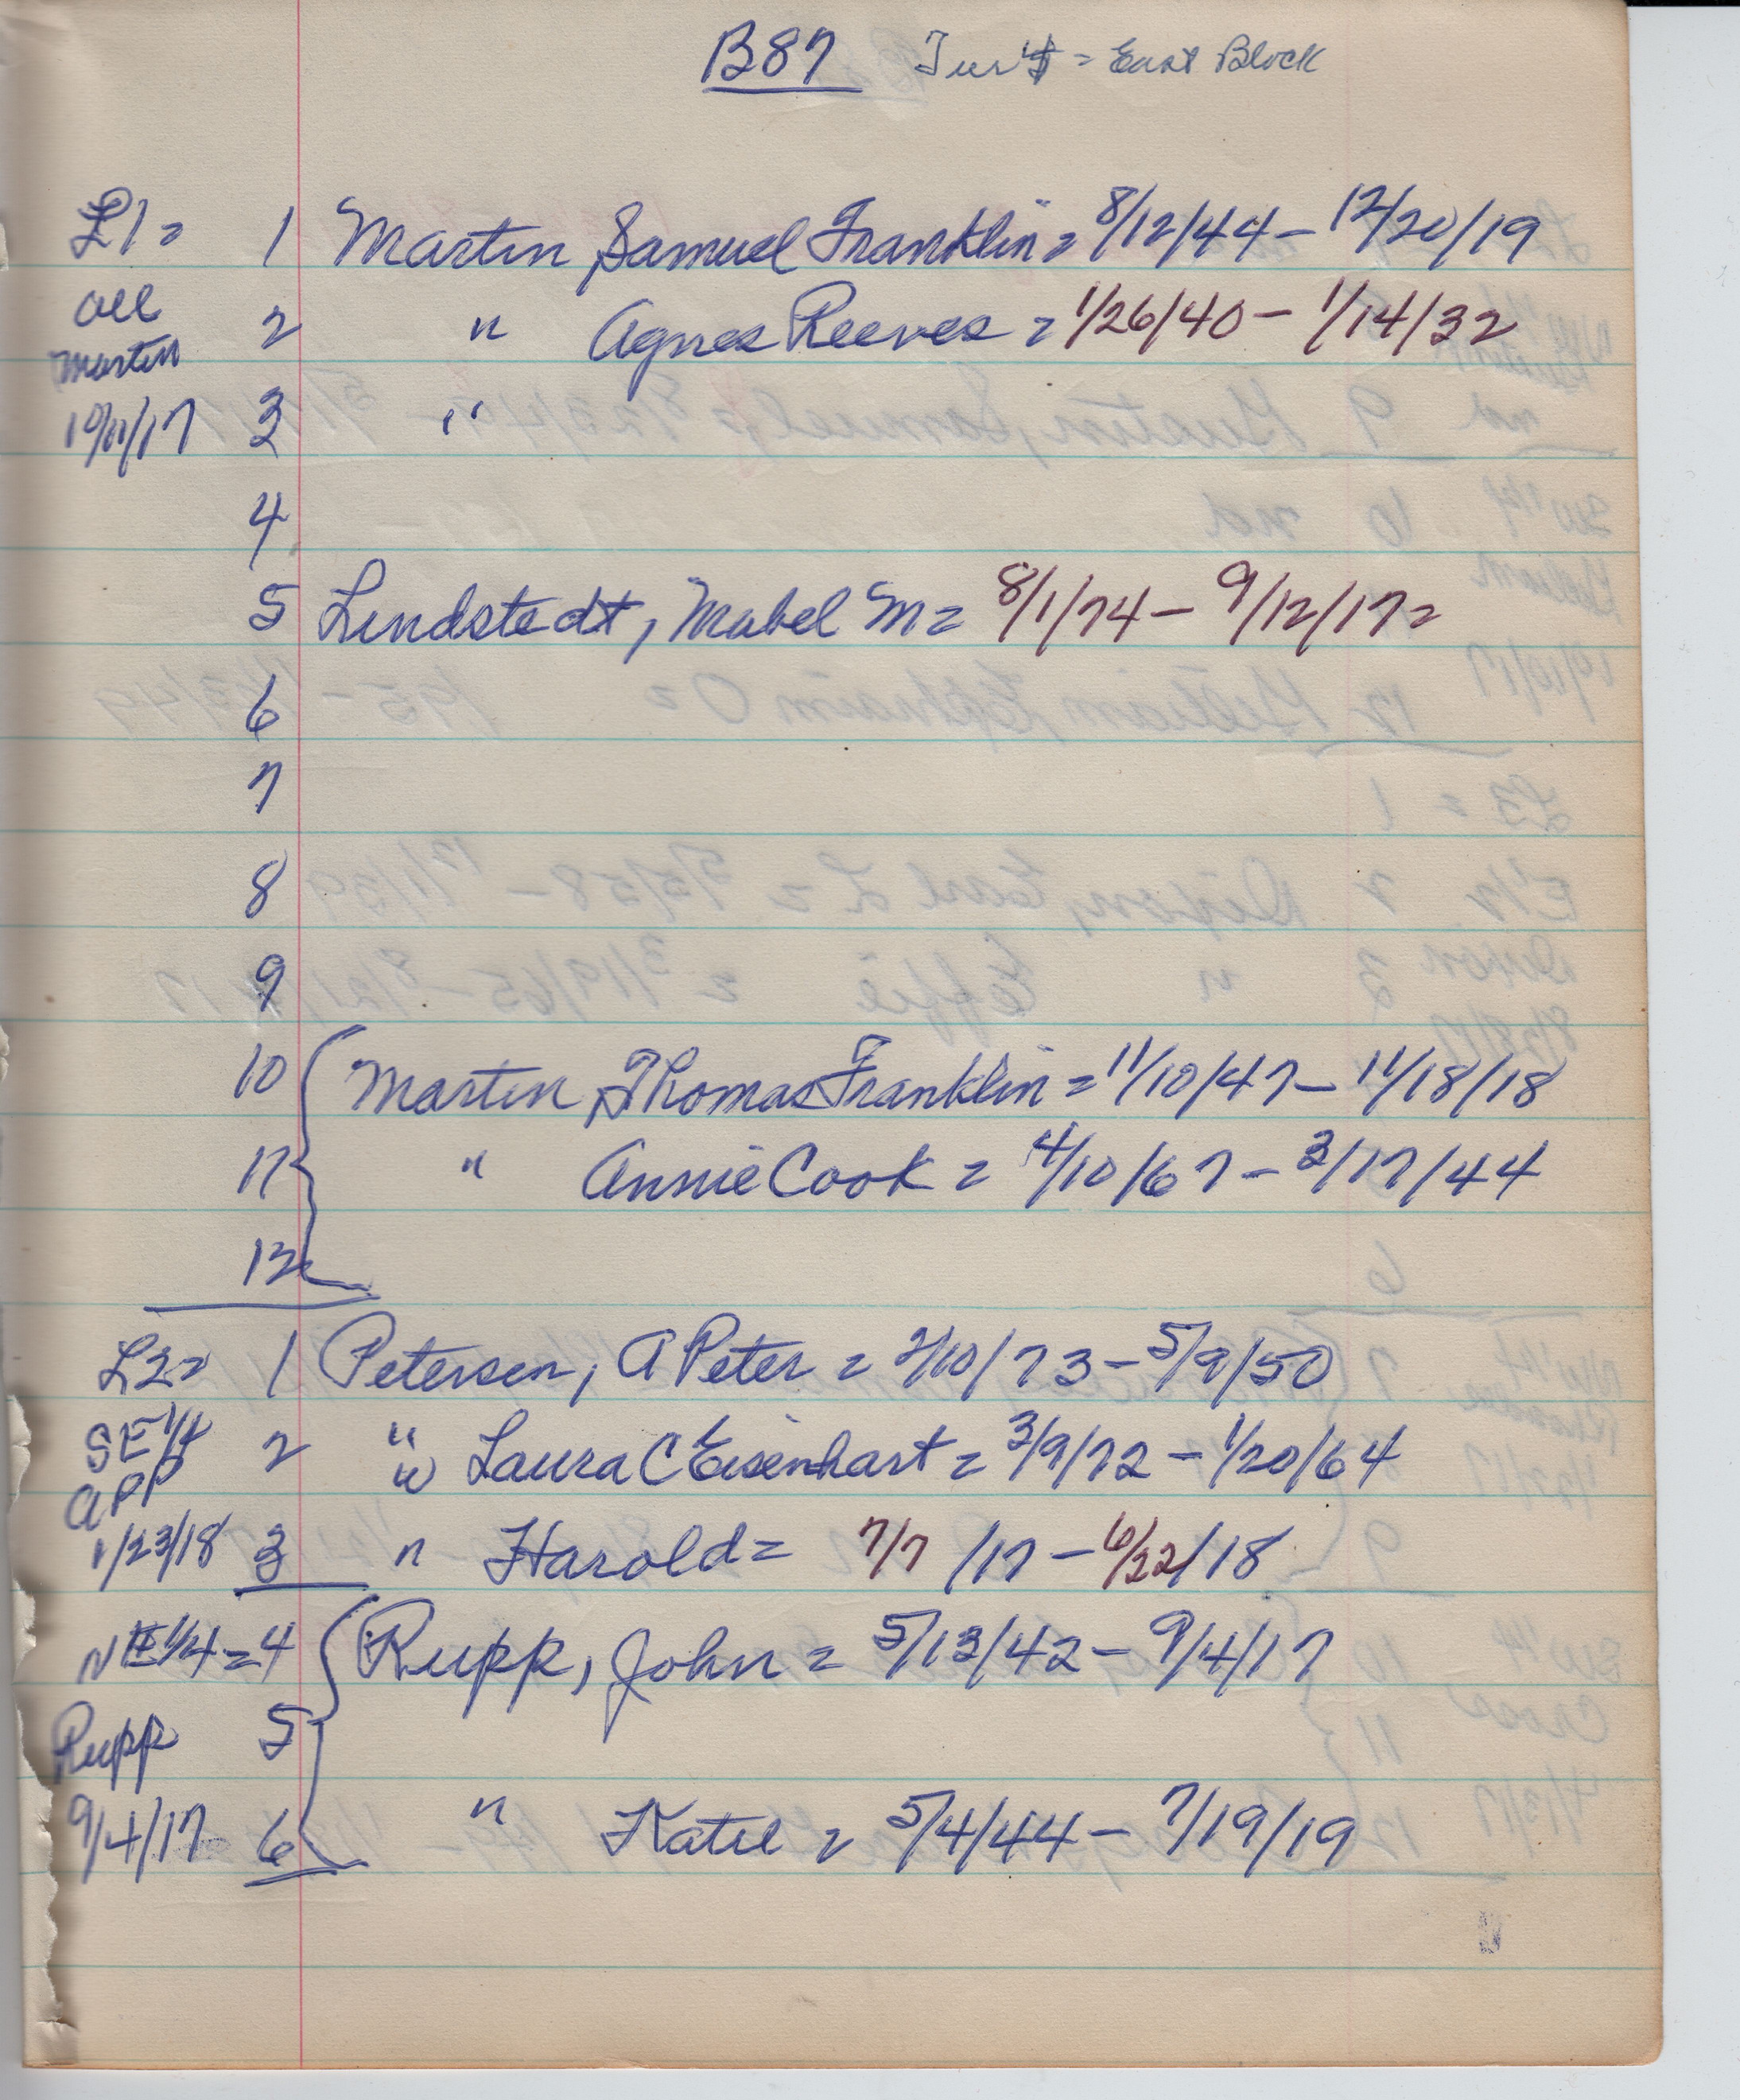 B87 = East Block
L1 = 1 Martin, Samuel Franklin = 8/12/44 - 12/20/19
all 2 " Agnes Reeves = 1/26/40 - 1/14/32
Martin
10/11/17 3 "
4
5 Lindstedt, Mabel M = 8/1/74 - 9/12/17 =
6
7
8
9
10 Martin, Thomas Franklin = 11/10/47 - 11/18/18
11 " Annie Cook = 4/10/67 - 3/17/44
12
L2 = 1 Petersen, A Peter = 2/10/73 - 5/9/50
SE 1/4 2 " " Laura C Eisenhart = 3/9/72 - 1/20/64
APP
1/23/18 3 " Harold = 7/7/17 - 6/22/18
NE 1/4 = 4 Rupp, John = 5/13/42 - 9/4/17
Rupp 5
9/4/17 6 " Katie = 5/4/44 - 7/19/19